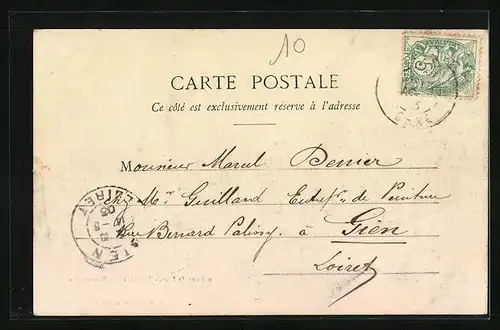 10
CARTE POSTALE
Ce côté est exclusivement réservé à l'adresse
Monsieur Marcel Perrier
Ch. Mr Guilland Entrepr de Peinture
Rue Bernard Palissy à Gien
Loiret
GIEN
LOIRET
5